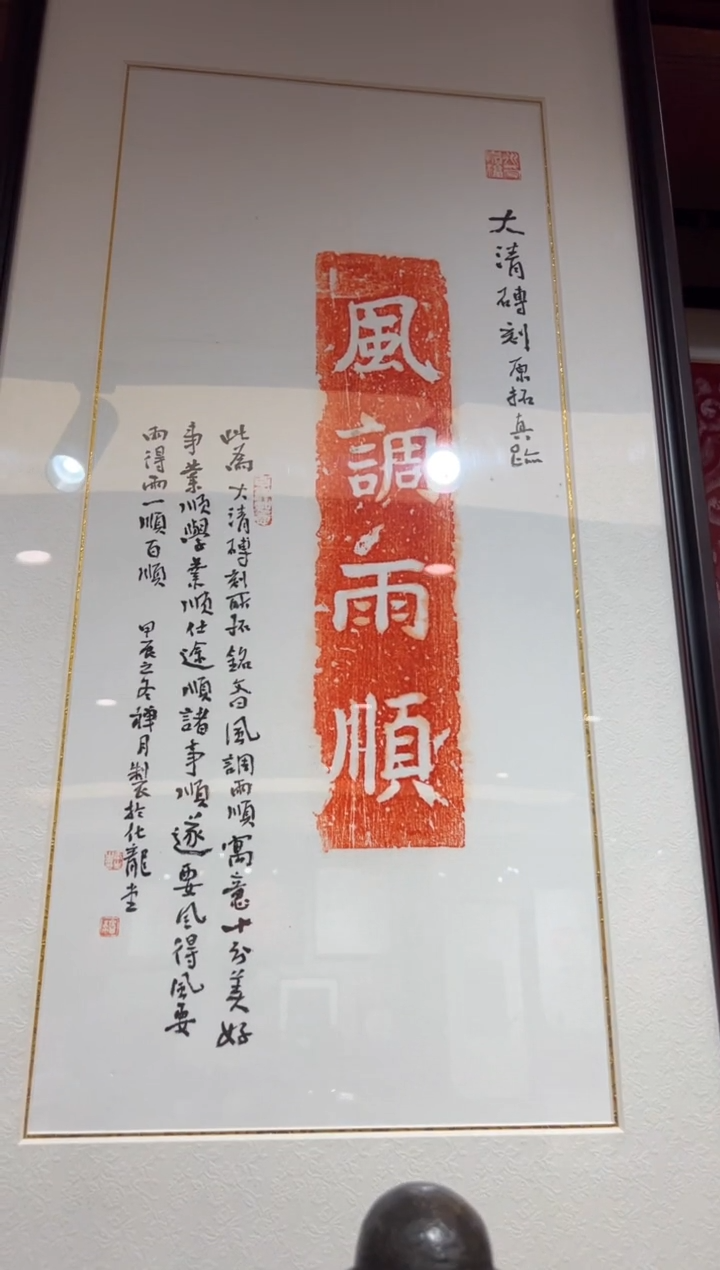 大清磚刻原拓真跡
風調雨順
此為大清磚刻所拓銘香風調雨順寓意十分美好
事業順學業順仕途順諸事順遂要風得風要
雨得雨一順百順
甲辰之冬禪月製於化龍堂